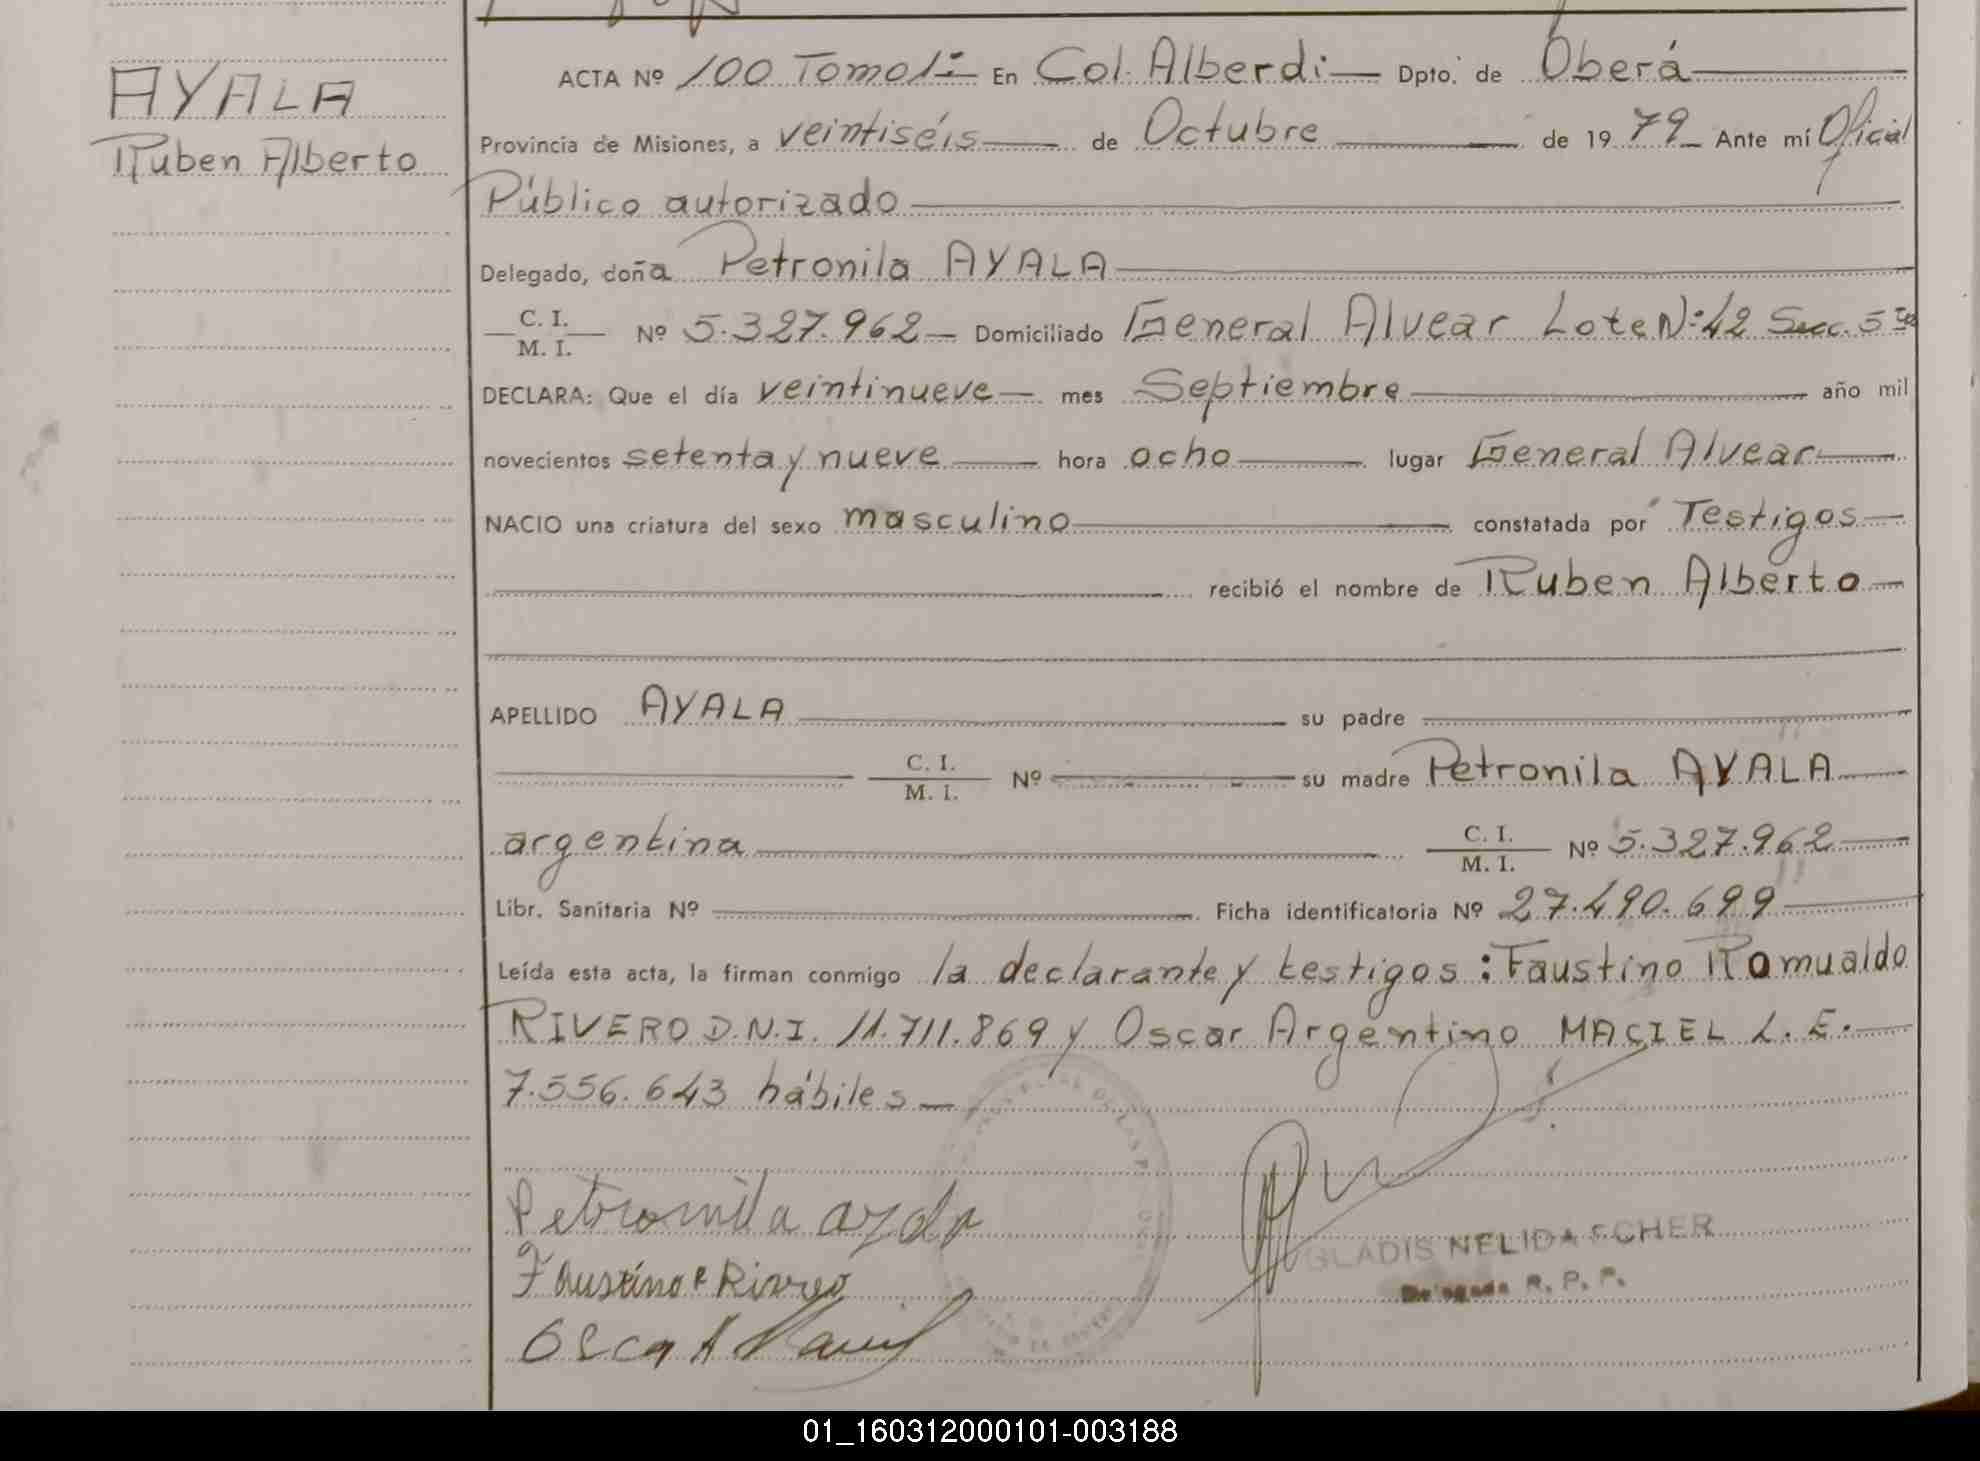 AYALA
Ruben Alberto
ACTA Nº 100 Tomo 1º En Col. Alberdi Dpto. de Oberá
Provincia de Misiones, a veintiséis de Octubre de 1979 Ante mí Oficial
Público autorizado
Delegado, doña Petronila AYALA
C. I.
M. I. Nº 5.327.962 Domiciliado General Alvear Lote Nº 42 Secc. 5ta
DECLARA: Que el día veintinueve mes Septiembre año mil
novecientos setenta y nueve hora ocho lugar General Alvear
NACIO una criatura del sexo masculino constatada por Testigos
recibió el nombre de Ruben Alberto
APELLIDO AYALA su padre
C. I.
M. I. Nº su madre Petronila AYALA
argentina C. I.
M. I. Nº 5.327.962
Libr. Sanitaria Nº Ficha identificatoria Nº 27.490.699
Leída esta acta, la firman conmigo la declarante y testigos: Faustino Romualdo
RIVERO D.N.I. 11.711.869 y Oscar Argentino MACIEL L.E.
7.556.643 hábiles
Petronila ayala
Faustino R Rivero
Oscar A
GLADIS NELIDA
Delegada R. P. P.
01_160312000101-003188